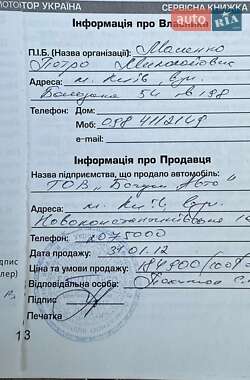 МОТОР УКРАЇНА СЕРВІСНА КНИЖКА
AUTO RIA
Інформація про Власника
П.І.Б. (Назва організації):
Петро Миколайович
Адреса: м. Київ, вул.
54 кв 198
Телефон: Дом:
Моб: 098 4112149
e-mail:
Інформація про Продавця
Назва підприємства, що продало автомобіль:
ТОВ „Богдан Авто"
Адреса: м. Київ вул.
Новокостянтинівська
Телефон: 2075000
Дата продажу: 31.01.12
Ціна та умови продажу: 184900/100%
Відповідальна особа:
Підпис
Печатка
13